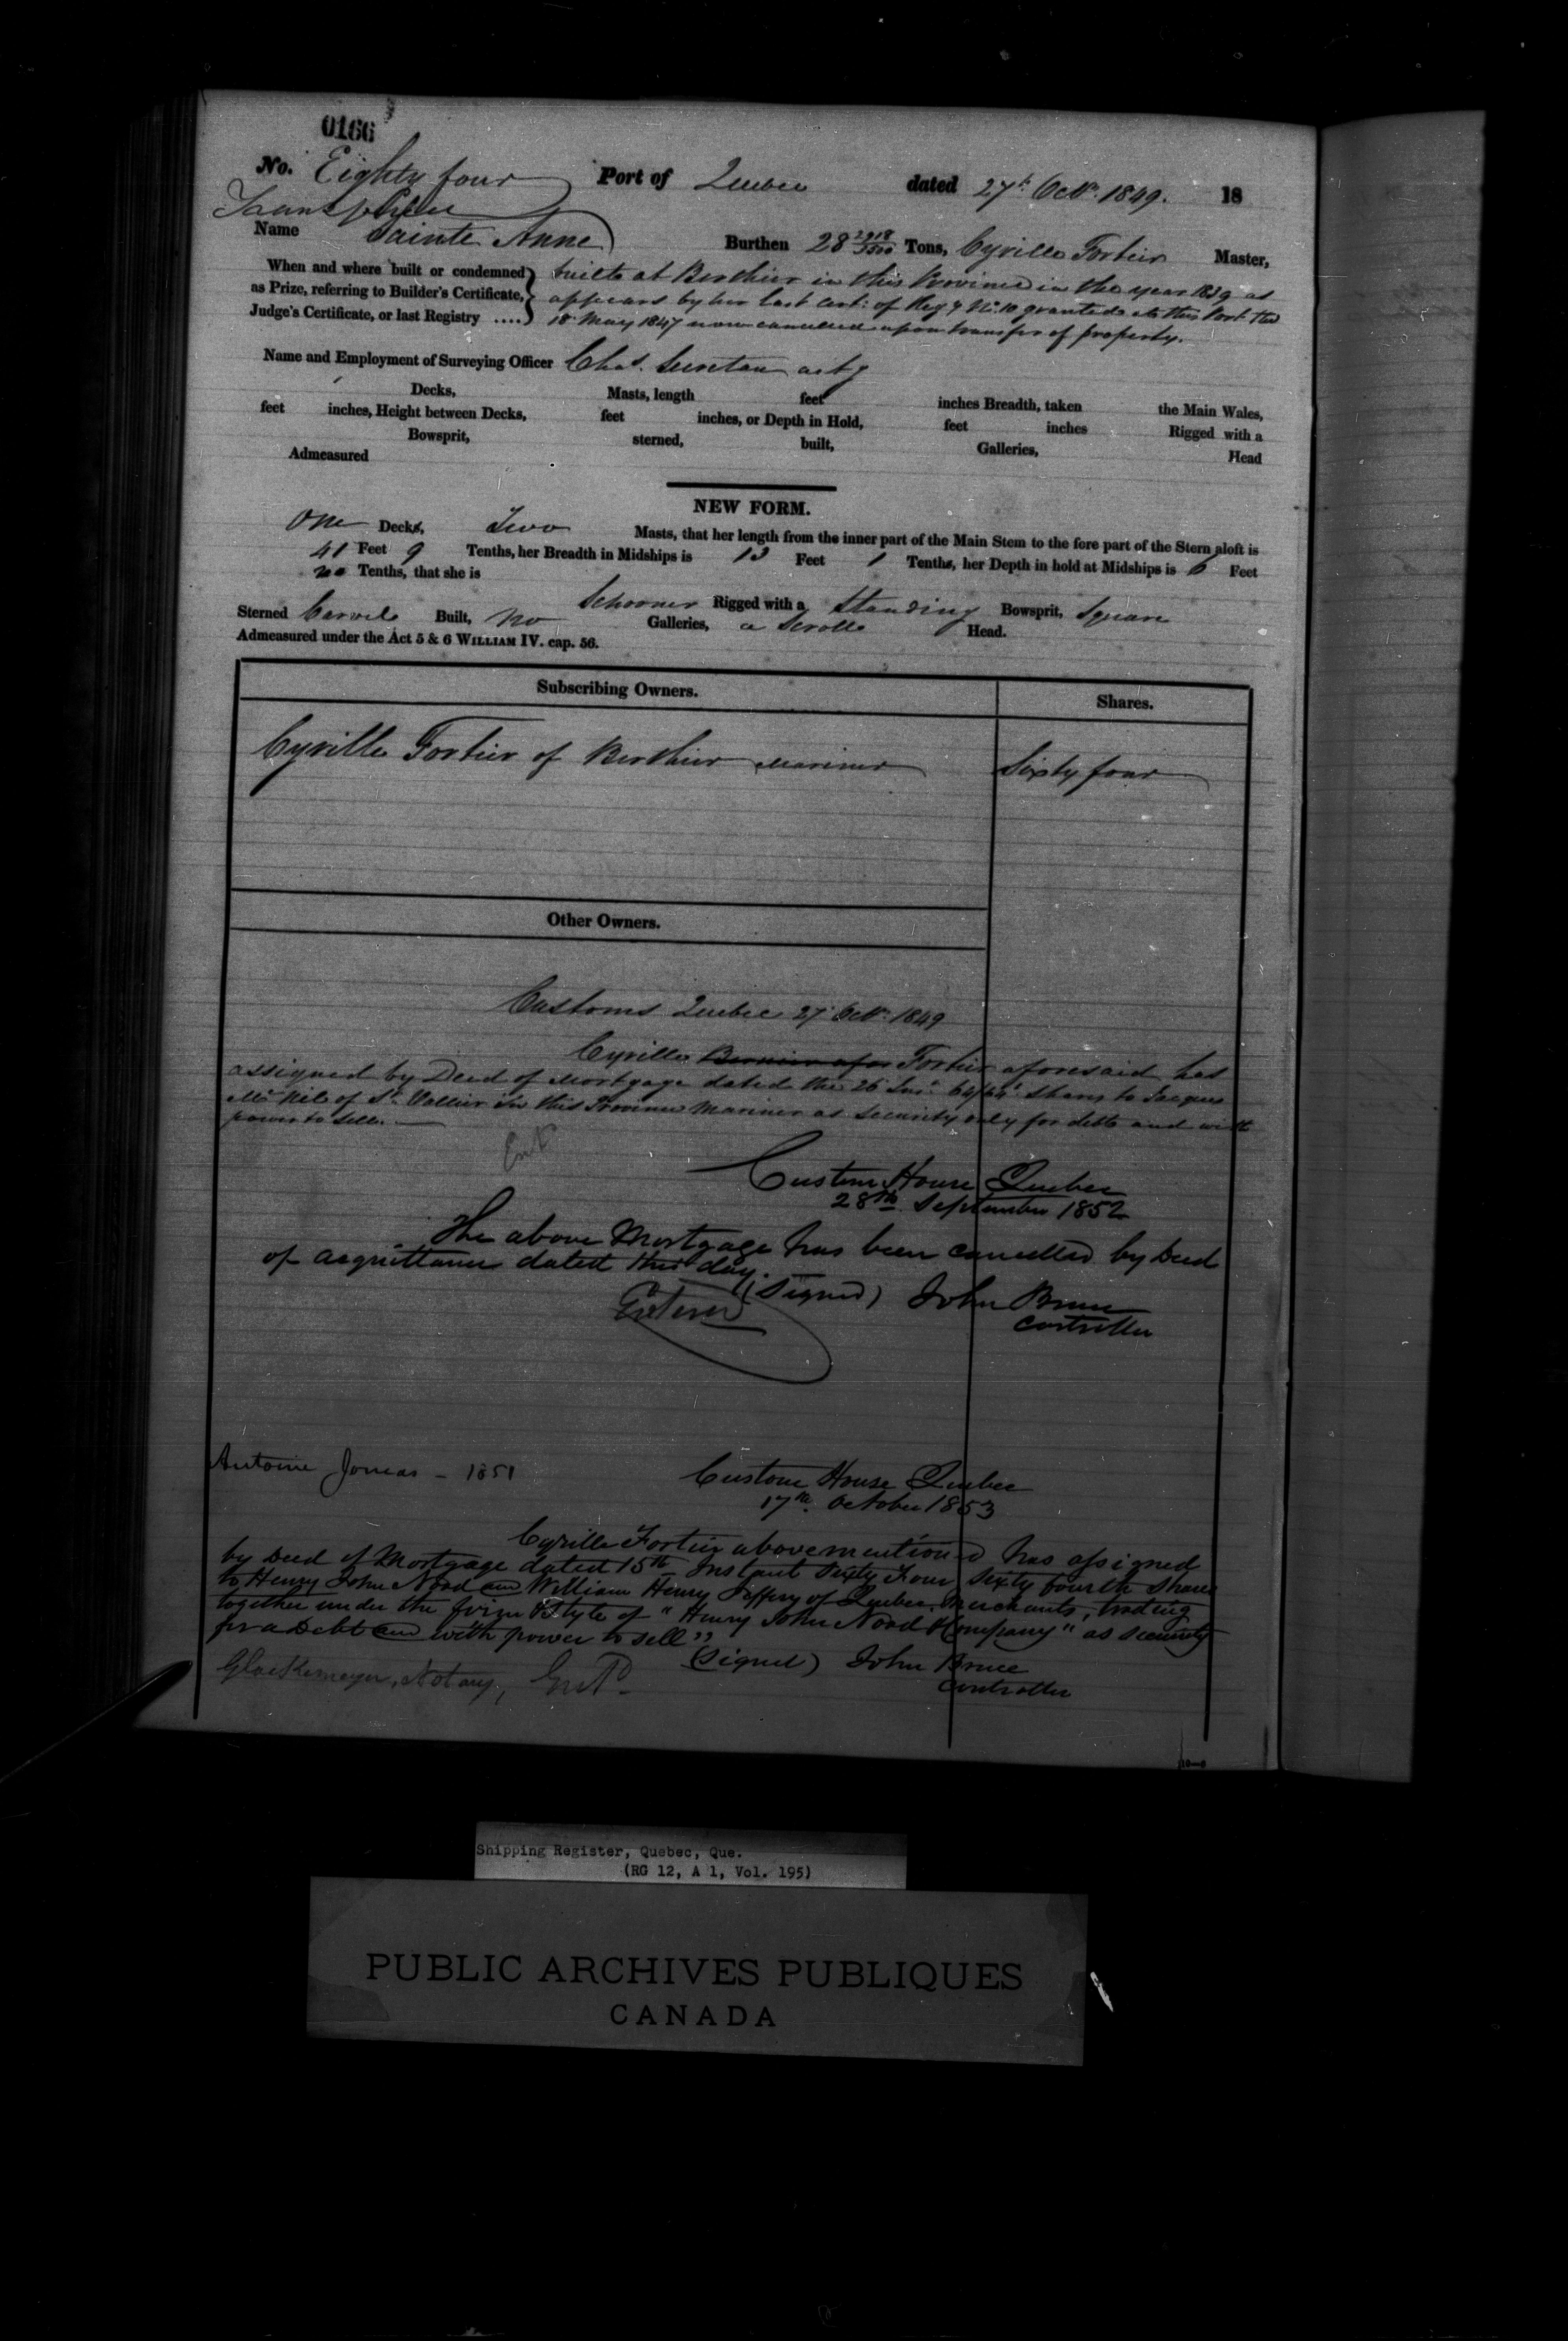 0166
No. Eighty four Port of Quebec dated 27th Octr. 1849. 18
Name Sainte Anne Burthen 28 2918/3500 Tons, Cyrille Fortier Master,
When and where built or condemned built at Berthier in this Province in the year 1839 as
as Prize, referring to Builder's Certificate, appears by her last Cert: of Regy No. 10 granted at this Port the
Judge's Certificate, or last Registry .... 18 May 1847 now cancelled upon transfer of property.
Name and Employment of Surveying Officer Chas. Secretan actg
Decks, Masts, length feet inches Breadth, taken the Main Wales,
feet inches, Height between Decks, feet inches, or Depth in Hold, feet inches Rigged with a
Bowsprit, sterned, built, Galleries, Head
Admeasured
NEW FORM.
One Decks, Two Masts, that her length from the inner part of the Main Stem to the fore part of the Stern aloft is
41 Feet 9 Tenths, her Breadth in Midships is 13 Feet 1 Tenths, her Depth in hold at Midships is 6 Feet
no Tenths, that she is Schooner Rigged with a Standing Bowsprit, Square
Sterned Carvel Built, no Galleries, a Scroll Head.
Admeasured under the Act 5 & 6 WILLIAM IV. cap. 56.
Subscribing Owners. Shares.
Cyrille Fortier of Berthier Mariner Sixty four
Other Owners.
Customs Quebec 27 Octr. 1849
Cyrille Fortier aforesaid has
assigned by Deed of Mortgage dated the 26 Inst. 64/64 Shares to Jacques
of St. Vallier in this Province Mariner as Security only for debt and with
power to sell.
Custom House Quebec
28th September 1852
The above Mortgage has been cancelled by Deed
of acquittance dated this day.
(Signed) John Bruce
Controller
Entered
Antoine Jomeas - 1851
Custom House Quebec
17th October 1853
Cyrille Fortier abovementioned has assigned
by Deed of Mortgage dated 15th Instant Sixty Four Sixty fourth Shares
to Henry John Noad and William Henry Jeffery of Quebec, Merchants, trading
together under the firm & Style of "Henry John Noad & Company" as security
for a Debt and with power to sell"
(Signed) John Bruce
Controller
Glackemeyer, Notary, Entd
10—6
Shipping Register, Quebec, Que.
(RG 12, A 1, Vol. 195)
PUBLIC ARCHIVES PUBLIQUES
CANADA